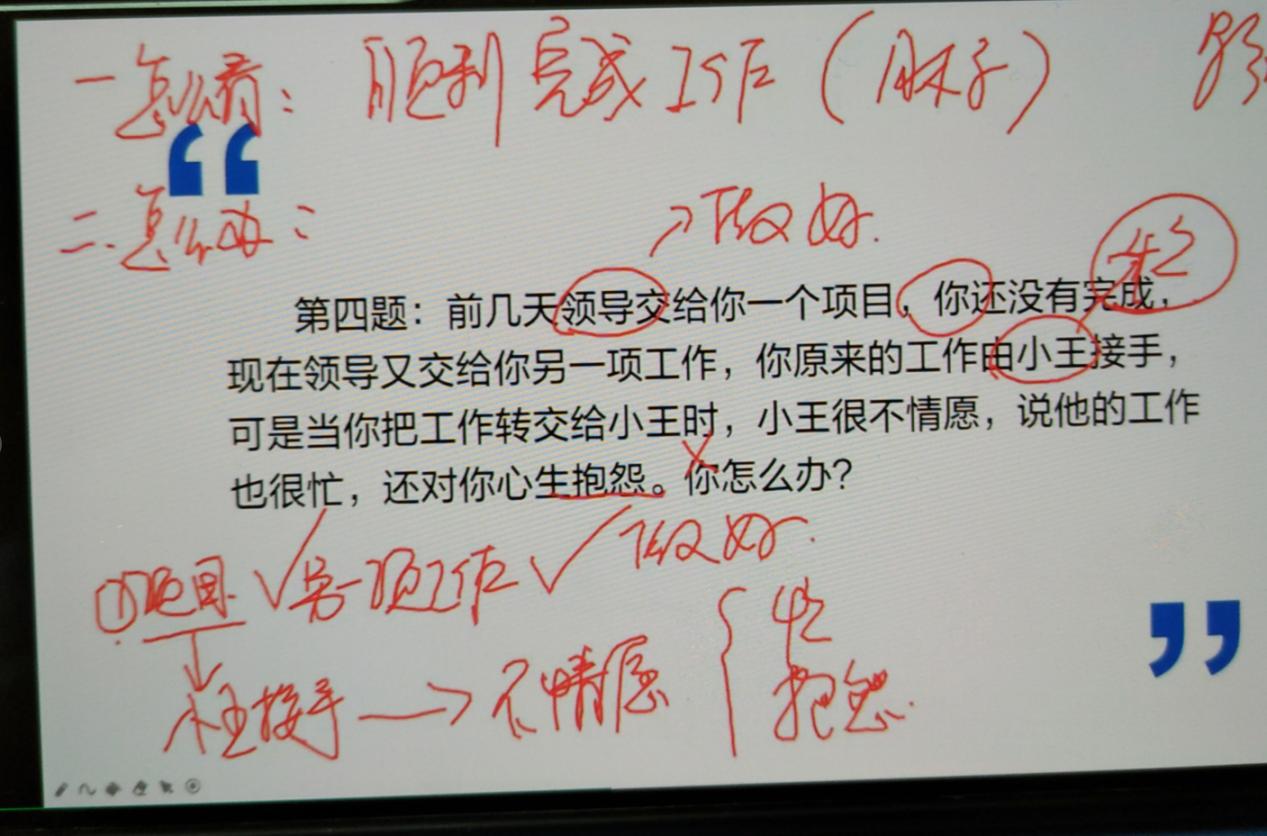 一怎么看：顺利完成工作（脖子）
二、怎么办：
→做好.
第四题：前几天领导交给你一个项目，你还没有完成，
现在领导又交给你另一项工作，你原来的工作由小王接手，
可是当你把工作转交给小王时，小王很不情愿，说他的工作
也很忙，还对你心生抱怨。你怎么办？
①项目 ✓另一项工作 ✓做好.
小王接手 → 不情愿 { 忙
抱怨.